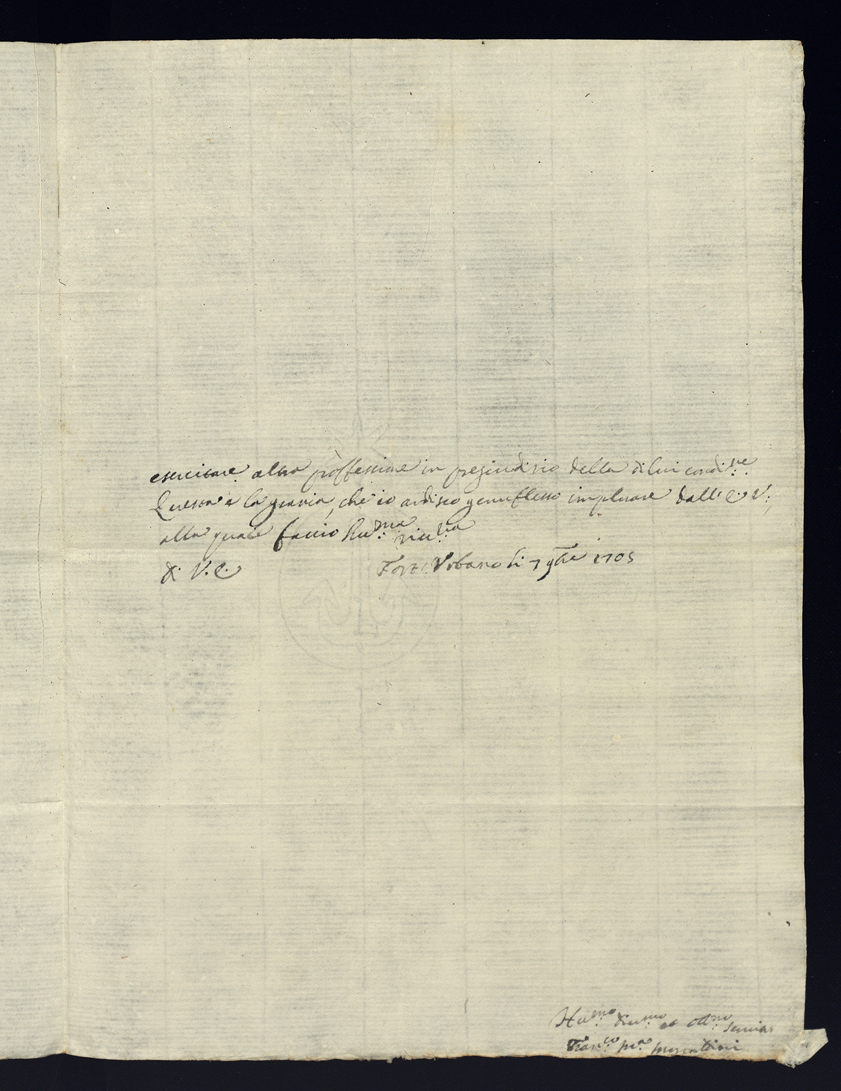 esercitare altra proffessione in pregiudizio della di lui condi.ne
Questa è la grazia, che io ardisco genuflesso implorare dall' E. V.,
alla quale faccio hu.ma riu.za
D. V. E. Forte Urbano li 7 9bre 1705
Hu.mo Diu.mo et Obb.mo Seruit.
Fran.co M.a